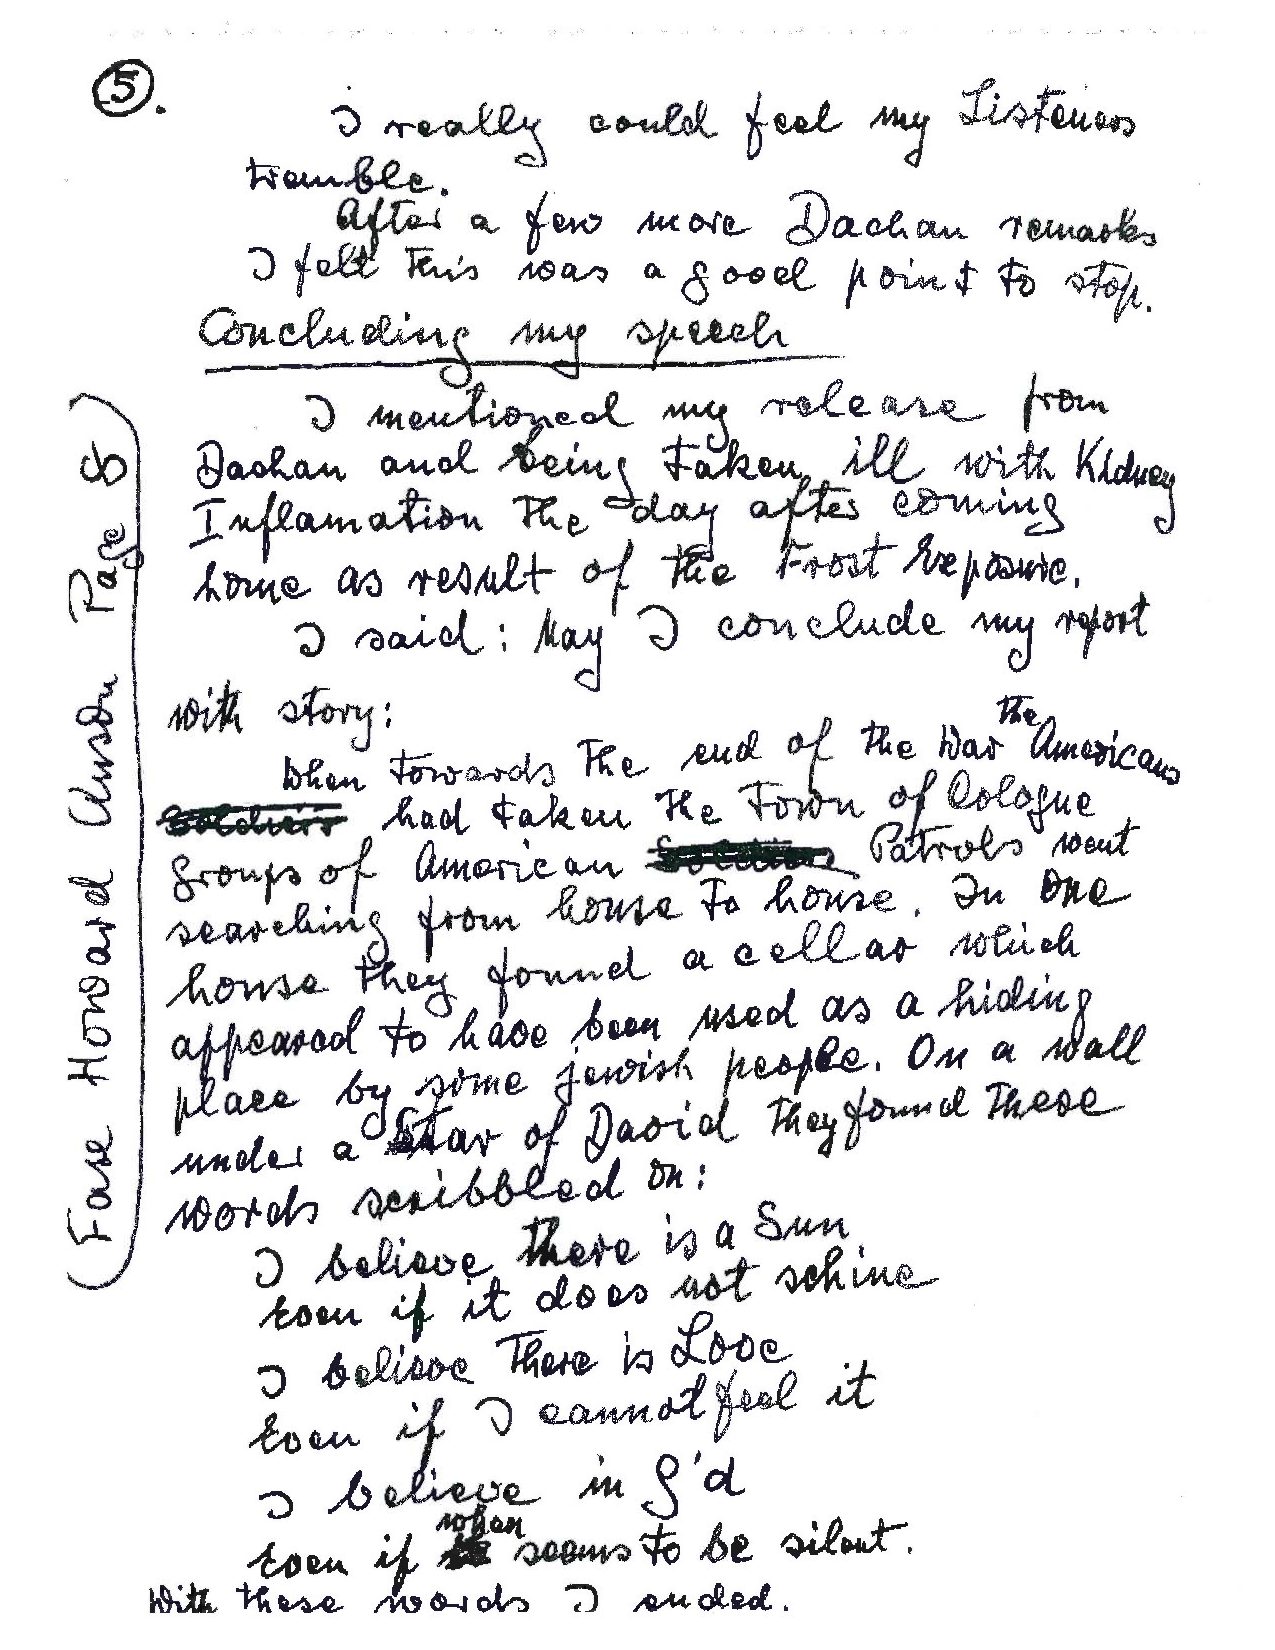 5.
I really could feel my Listeners
tremble.
After a few more Dachau remarks
I felt this was a good point to stop.
Concluding my speech
I mentioned my release from
Dachau and being taken ill with Kidney
Inflamation the day after coming
home as result of the Frost Exposure.
I said: May I conclude my report
with story:
When towards the end of the War the Americans
Soldiers had taken the Town of Cologne
groups of American Soldiers Patrols went
searching from house to house. In one
house they found a cellar which
appeared to have been used as a hiding
place by some jewish people. On a wall
under a Star of David they found these
words scribbled on:
I believe there is a Sun
Even if it does not schine
I believe There is Love
Even if I cannot feel it
I believe in G'd
Even if when seems to be silent.
With these words I ended.
(Fase Howard Anson Page 8)